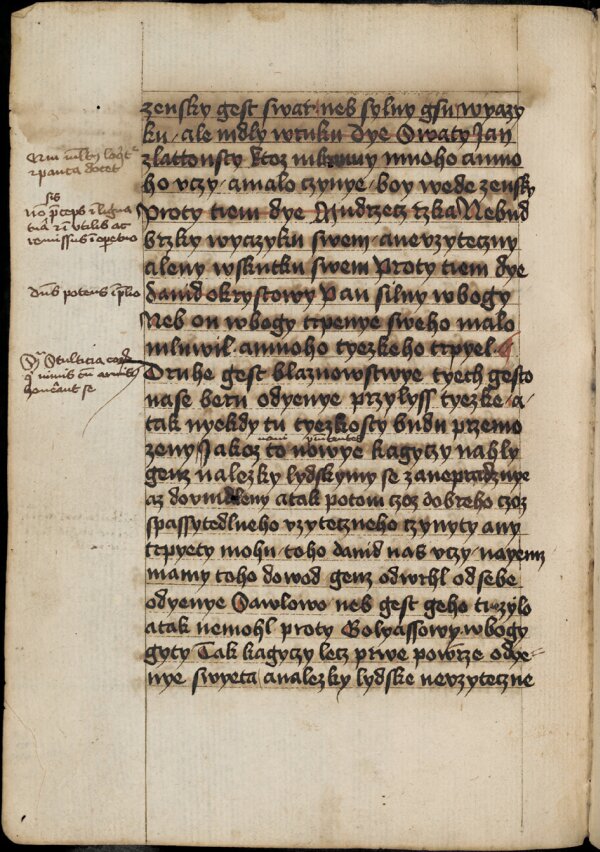 zensky gest swar neb sylny gsu wyazy
ku ale mdly wruku Dye Swaty Jan
zlattousty ktoz mluwy mnoho a mno
ho vczy a malo czyny boy wede zensky
Proty tiem dye Andrzecz rzka Nebud
brzky wyazyku swem a nevzyteczny
a leny wskutku swem Proty tiem dye
dauid o krystowy Pan silny wbogy
Neb on wbogy trpenye sweho malo
mluwil a mnoho tyezkeho trpyel
Druhe gest blaznowstwye tyech gesto
nase beru odyenye przylyss tyezke a
tak nyekdy tu tyezkosty budu przemo
zeny Jakoz to nowye kagyczy nahly
genz nalezky lydskymy se zaneprazdnye
az do vmdleny a tak potom czoz dobreho czoz
spassytedlneho vzyteczneho czynyty any
trpyety mohu toho dauid nas vczy nayemz
mamy toho dowod genz odwrhl od sebe
odyenye Sawlowo neb gest geho tuzylo
a tak nemohl proty Golyassowy wbogy
gyty Tak kagyczy lecz prwe powrze odye=
nye swyeta a nalezky lydske nevzyteczne
sis
no p̄ceps i ligua
tua et iutilis ac
remissus i operibus
Dn̄s potens i plio
Stulticia eorum
q̄ nimis cū armis
honerant se